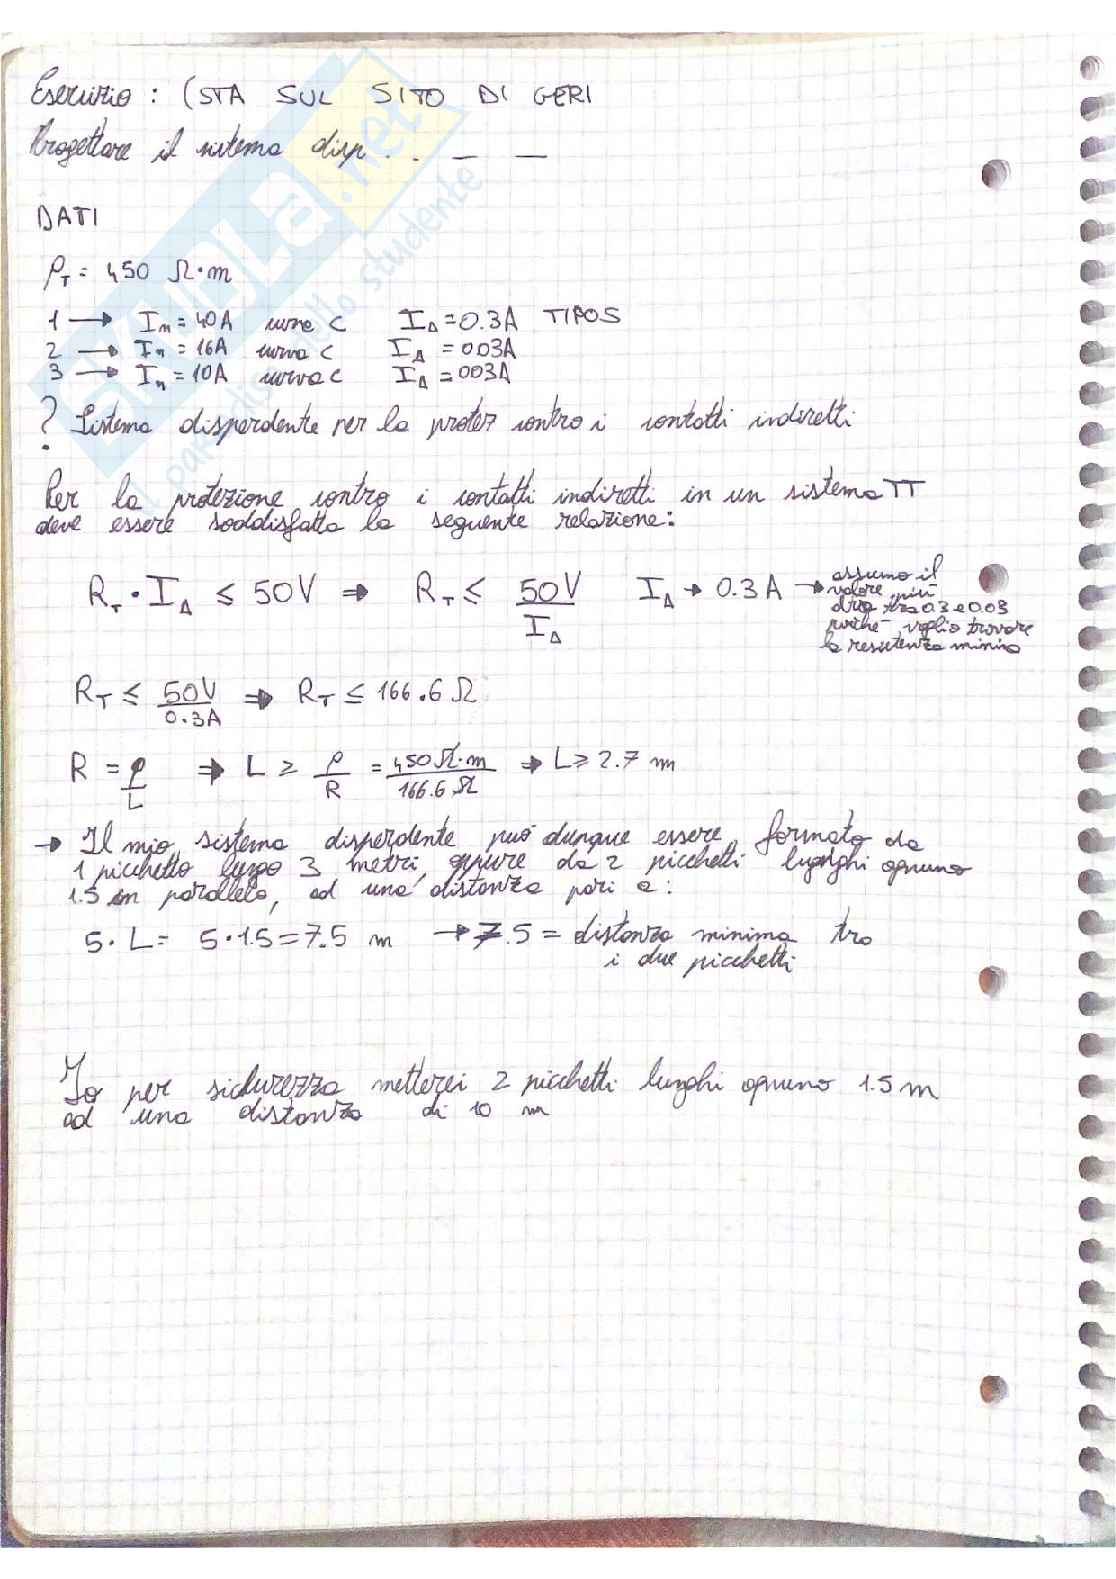 Esercizio : (STA SUL SITO DI GERI
Progettare il sistema disp . . _ _
DATI
ρT = 450 Ω·m
1 → In = 40A curva C IΔ = 0.3A TIPO S
2 → In = 16A curva C IΔ = 003A
3 → In = 10A curva C IΔ = 003A
? Sistema disperdente per la protez contro i contatti indiretti
Per la protezione contro i contatti indiretti in un sistema TT
deve essere soddisfatta la seguente relazione:
RT · IΔ ≤ 50V ⇒ RT ≤ 50V / IΔ IΔ → 0.3A → assumo il
valore più
tra 0.3 e 0.03
perché voglio trovare
la resistenza minima
RT ≤ 50V / 0.3A ⇒ RT ≤ 166.6 Ω
R = ρ / L ⇒ L ≥ ρ / R = 450 Ω·m / 166.6 Ω ⇒ L ≥ 2.7 m
→ Il mio sistema disperdente può dunque essere formato da
1 picchetto lungo 3 metri, oppure da 2 picchetti lughghi ognuno
1.5 m in parallelo, ad una distanza pari a:
5 · L = 5 · 1.5 = 7.5 m → 7.5 = distanza minima tra
i due picchetti
Io per sicurezza metterei 2 picchetti lunghi ognuno 1.5 m
ad una distanza di 10 m
SKUOLA.net
il paradiso dello studente